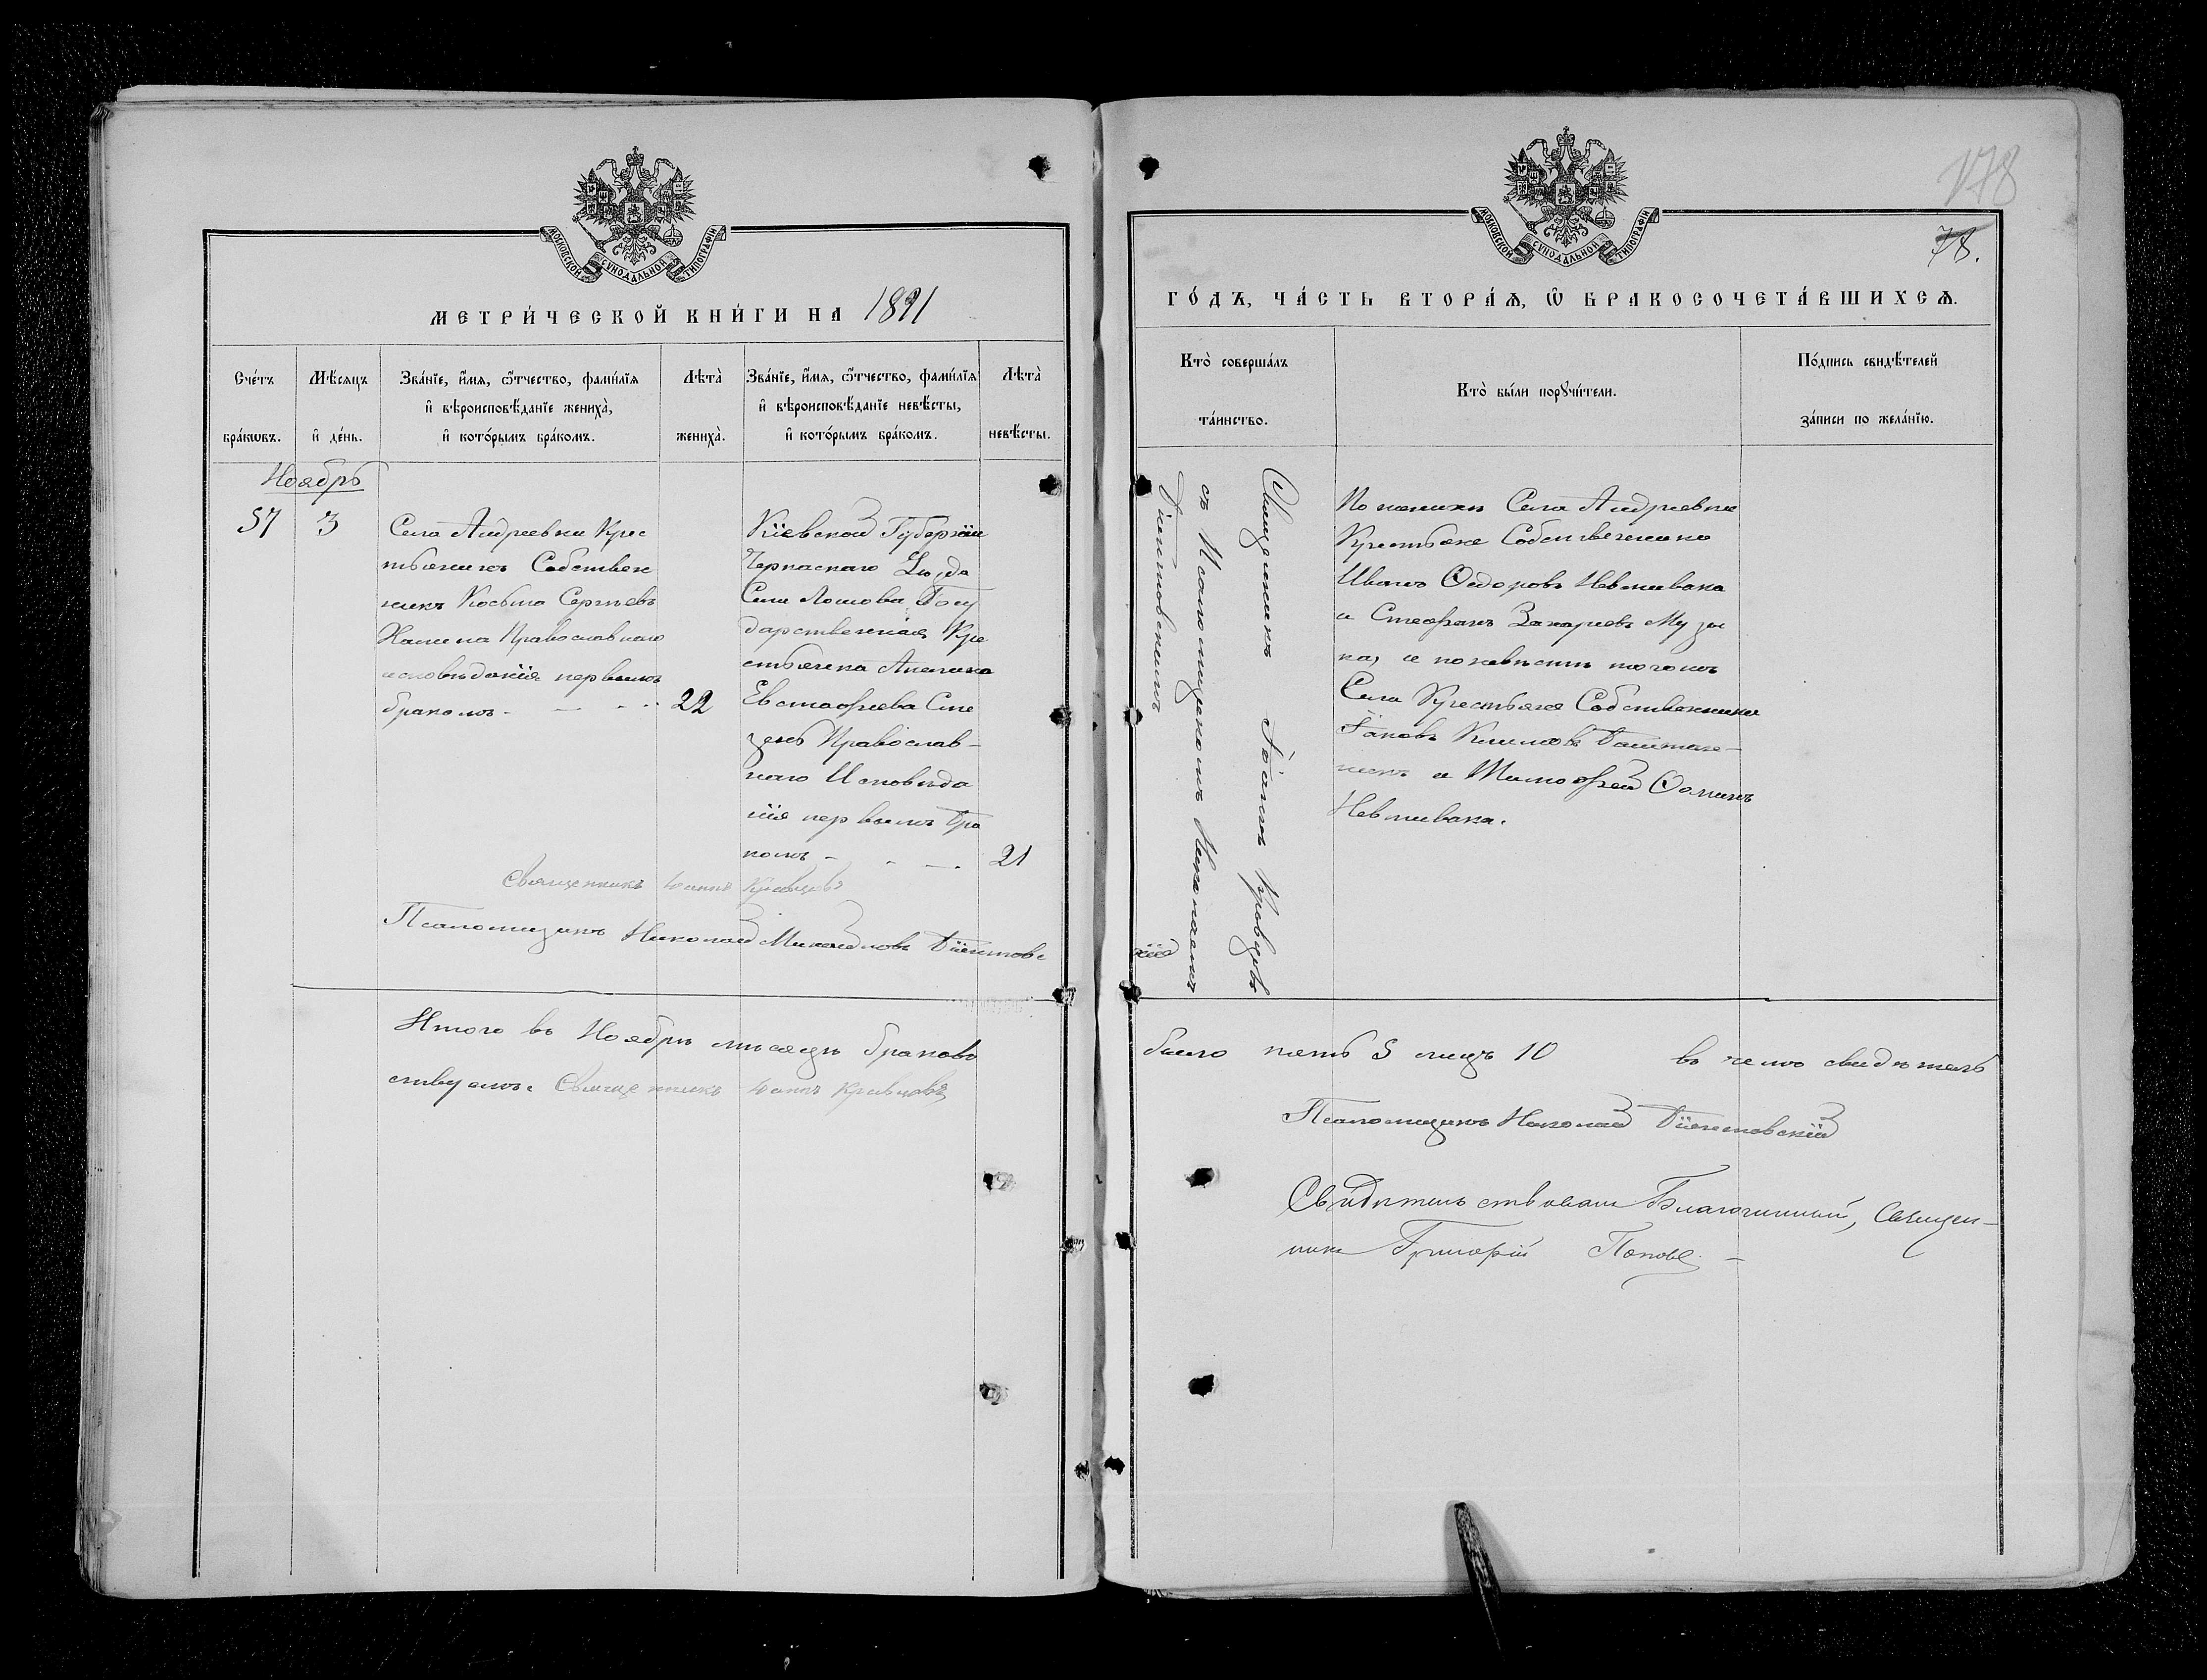 МОСКОВСКОЙ СУНОДАЛЬНОЙ ТИПОГРАФІИ
МЕТРИ́ЧЕСКОЙ КНИ́ГИ НА 1891
Сче́тъ бра́кѡвъ.
Мѣ́сяцъ и҆ де́нь.
Зва́нїе, и҆́мя, ѻ҆́тчество, фами́лїя
и҆ вѣроисповѣ́данїе жениха̀,
и҆ кото́рымъ бра́комъ.
Лѣта̀ жениха̀.
Зва́нїе, и҆́мя, ѻ҆́тчество, фами́лїя
и҆ вѣроисповѣ́данїе невѣ́сты,
и҆ кото́рымъ бра́комъ.
Лѣта̀ невѣ́сты.
Ноябрь
57
3
Села Андреевки Крес
тьянинъ Собствен
никъ Косьма Сергѣевъ
Православнаго
исповѣданія первымъ
бракомъ - 22
Кіевской Губерніи
Черкаскаго Уѣзда
Села Госу
дарственная Кре
стьянка
Евстафіева
Православ-
наго Исповѣда
нія первымъ бра
комъ - 21
Священникъ Іоаннъ Кравцовъ
Псаломщикъ Николай Михайловъ
Итого въ Ноябрѣ мѣсяцѣ браковъ
ствуемъ: Священникъ Іоаннъ Кравцовъ
178
78.
МОСКОВСКОЙ СУНОДАЛЬНОЙ ТИПОГРАФІИ
ГО́ДЪ, ЧА́СТЬ ВТОРА́Ѧ, Ѡ҆ БРАКОСОЧЕТА́ВШИХСѦ.
Кто̀ соверша́лъ
та́инство.
Кто̀ бы́ли порꙋчи́тели.
По́дпись свидѣ́телей
за́писи по жела́нїю.
Священникъ Іоаннъ Кравцовъ
съ Псаломщикомъ Николаемъ
По женихѣ Села Андреевки
Крестьяне Собственники
Иванъ Ѳедоровъ Невшивака
и Стефанъ Захаріевъ Музы
ка, и по невѣстѣ того жъ
Села Крестьяне Собственники
Іаковъ Климовъ
и Тимофей Ѳоминъ
Невшивака.
было пять 5 лицъ 10 въ чемъ свидѣтель
Псаломщикъ Николай
Свидѣтельствовалъ Благочинный, Священ-
никъ Григорій Поповъ. -